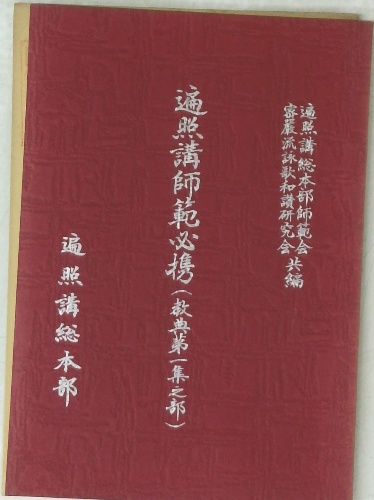 遍照講総本部師範会
密厳流詠歌和讃研究会 共編
遍照講師範必携(教典第一集之部)
遍照講総本部